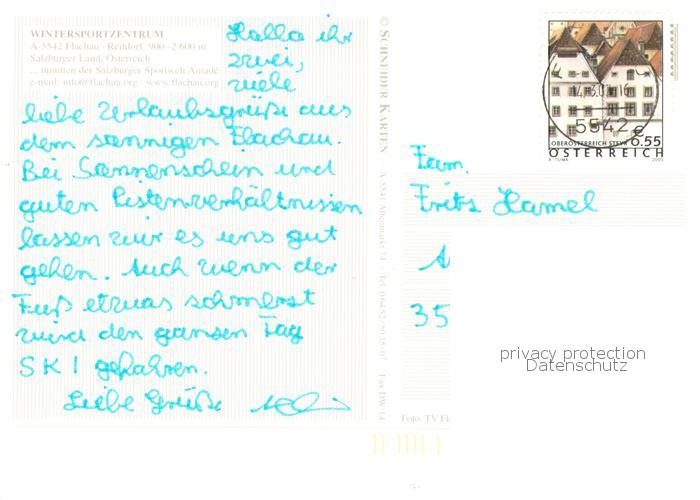 WINTERSPORTZENTRUM
A-5542 Flachau · Reitdorf, 900–2.600 m
Salzburger Land, Österreich
... inmitten der Salzburger Sportwelt Amadé
e-mail: info@flachau.org · www.flachau.org
Hallo ihr
zwei,
viele
liebe Urlaubsgrüße aus
dem sonnigen Flachau.
Bei Sonnenschein und
guten Pistenverhältnissen
lassen wir es uns gut
gehen. Auch wenn der
Fuß etwas schmerzt
wird den ganzen Tag
SKI gefahren.
Liebe Grüße
© SCHNEIDER KARTEN
A-5541 Altenmarkt 74
Fax DW 14
Foto: TV Fl
5542
€ 0.55
OBERÖSTERREICH STEYR
ÖSTERREICH
A. TUMA
Fam.
Fritz Hamel
A
35
privacy protection
Datenschutz